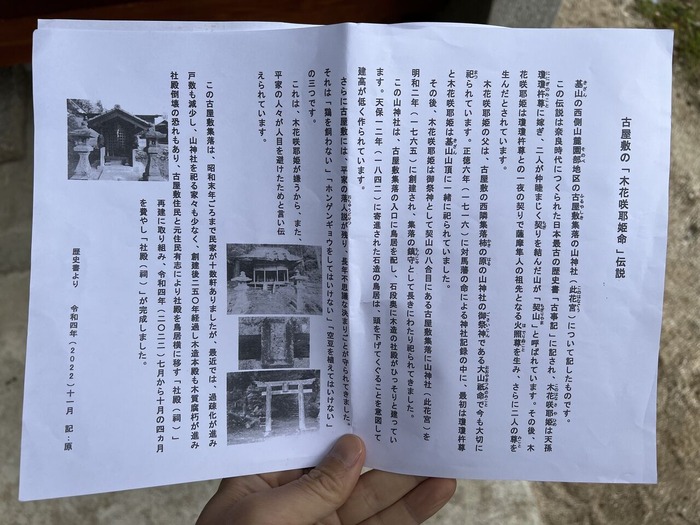 古屋敷の「木花咲耶姫命」伝説
基山の西側山麓園部地区の古屋敷集落の山神社（此花宮）について記したものです。
この伝説は奈良時代につくられた日本最古の歴史書「古事記」に記され、木花咲耶姫は天孫
瓊瓊杵尊に嫁ぎ、二人が仲睦まじく契りを結んだ山が「契山」と呼ばれています。その後、木
花咲耶姫は瓊瓊杵尊との一夜の契りで薩摩隼人の祖先となる火照尊を生み、さらに二人の尊を
生んだとされています。
木花咲耶姫の父は、古屋敷の西隣集落柿の原の山神社の御祭神である大山祇命で今も大切に
祀られています。正徳六年（一七一六）に対馬藩の命による神社記録の中に、最初は瓊瓊杵尊
と木花咲耶姫は基山山頂に一緒に祀られていました。
その後、木花咲耶姫は御祭神として契山の八合目にある古屋敷集落に山神社（此花宮）を
明和二年（一七六五）に創建され、集落の鎮守として長きにわたり祀られてきました。
この山神社は、古屋敷集落の入口に鳥居を配し、石段奥に木造の社殿がひっそりと建ってい
ます。天保一二年（一八四二）に寄進された石造の鳥居は、頭を下げてくぐることを意図して
建高が低く作られています。
さらに古屋敷には、平家の落人説が残り、長年不思議な決まりごとが守られてきました。
それは「鶏を飼わない」「ホンゲンギョウをしてはいけない」「空豆を植えてはいけない」
の三つです。
これは、木花咲耶姫が嫌うから、また、
平家の人々が人目を避けたためと言い伝
えられています。
この古屋敷集落は、昭和末年ごろまで民家が十数軒ありましたが、最近では、過疎化が進み
戸数も減少し、山神社を祀る家々も少なく、創建後二五〇年経過し木造本殿も木質腐朽が進み
社殿倒壊の恐れもあり、古屋敷住民と元住民有志により社殿を鳥居横に移す「社殿（祠）」
再建に取り組み、令和四年（二〇二二）七月から十月の四カ月
を費やし「社殿（祠）」が完成しました。
歴史書より　令和四年（2022）十一月　記：原